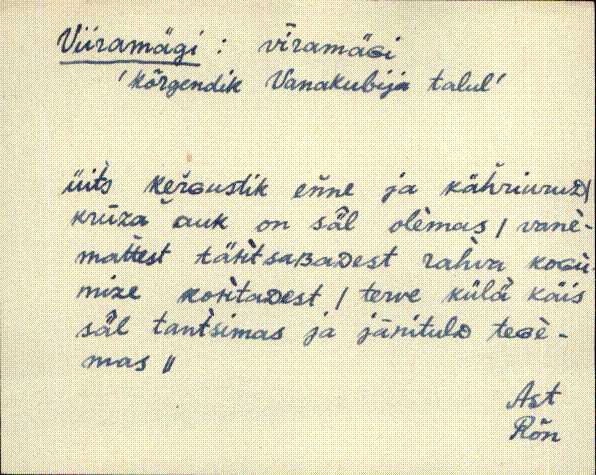 Viiramägi : vīramäGi
'kõrgendik Vanakubija talul'
üits keŕGustik eńne ja kähriurud/
krūza auk on säl olèmas / vanè-
mattest täŕitsaBaDest rahva koGù-
mize koŕitaDest / terve külä käis
säl tantsimas ja jānituld teGè-
mas //
Ast
Rõn